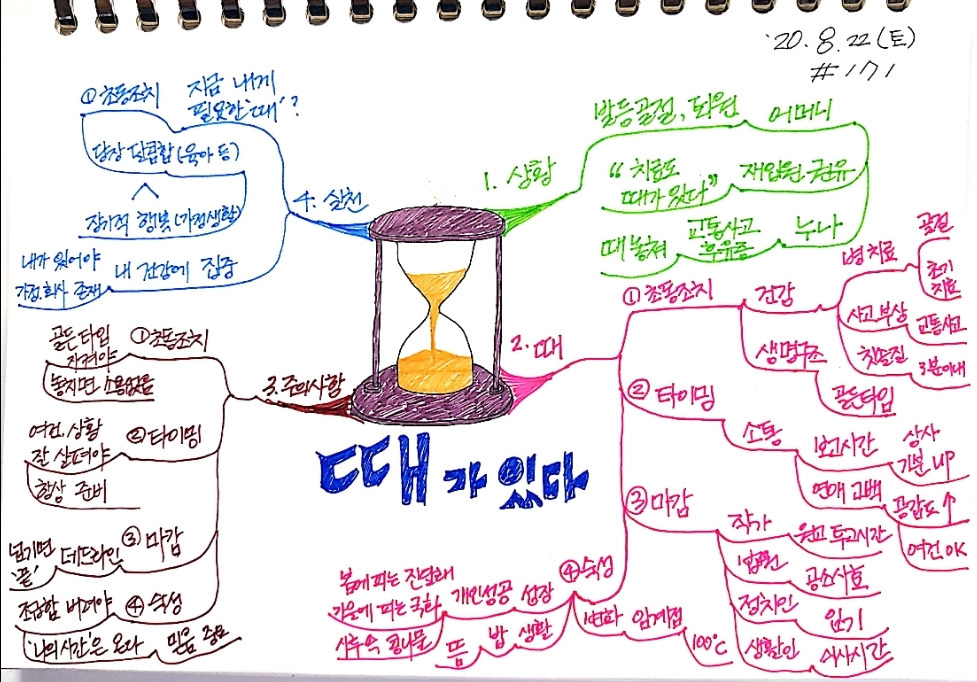 '20. 8. 22 (토)
#171
때가 있다
1. 상황
어머니
발등골절, 퇴원
재입원 권유
"치료도
때가 있다"
누나
교통사고
후유증
때 놓쳐
2. 때
① 초동조치
건강
병 치료
골절
초기
치료
사고 부상
교통사고
칫솔질
3분이내
생명구조
골든타임
② 타이밍
소통
보고시간
상사
기분 UP
연애 고백
공감도 ↑
여건 OK
③ 마감
작가
원고 투고시간
법원
공소시효
정치인
임기
생활인
식사시간
④ 숙성
변화
임계점
100℃
생활
밥
뜸
성장
개인성공
봄에 피는 진달래
가을에 피는 국화
시루 속 콩나물
3. 주의사항
① 초동조치
골든타임
지켜야
놓치면 소용없음
② 타이밍
여건, 상황
잘 살펴야
항상 준비
③ 마감
데드라인
넘기면
'끝'
④ 숙성
조급함 버려야
'나의 시간'은 온다
믿음 중요
4. 실천
지금 내게
필요한 '때'?
① 초동조치
당장 달콤함 (육아 등)
∧
장기적 행복 (가정생활)
내 건강에 집중
내가 있어야
가정, 회사 존재